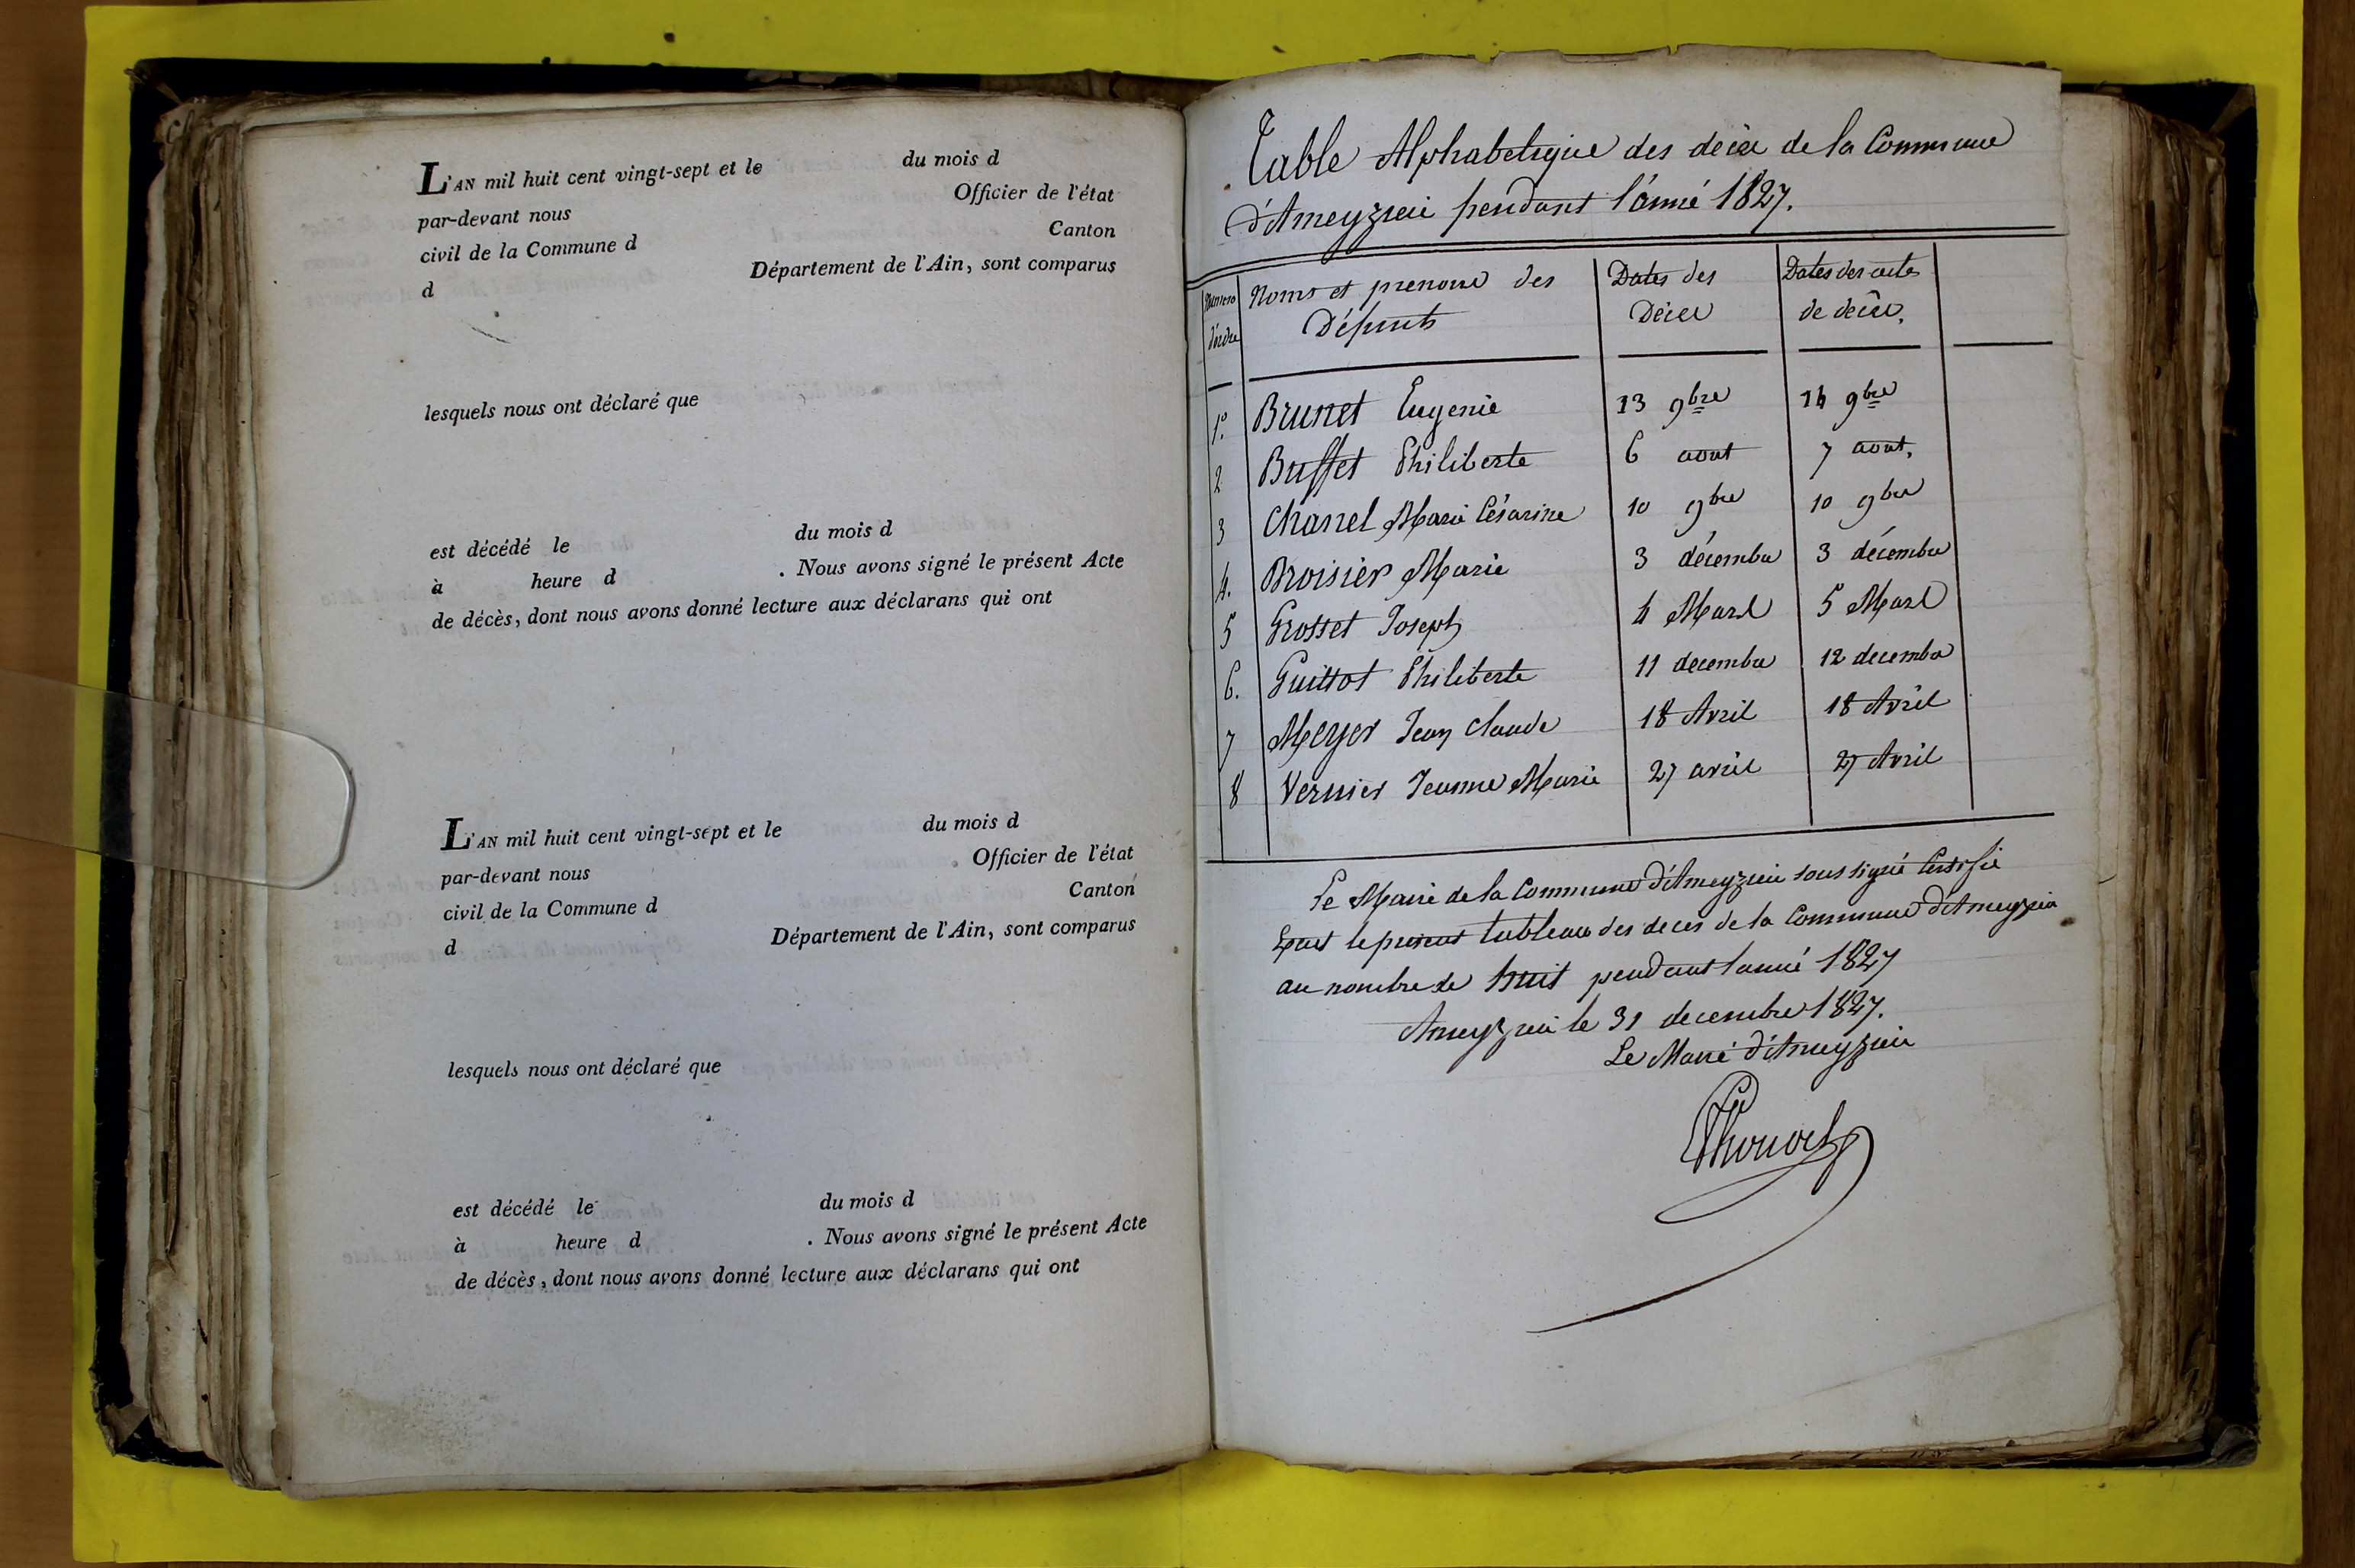 L'AN mil huit cent vingt-sept et le du mois d
par-devant nous Officier de l'état
civil de la Commune d Canton
d Département de l'Ain, sont comparus
lesquels nous ont déclaré que
est décédé le du mois d
à heure d . Nous avons signé le présent Acte
de décès, dont nous avons donné lecture aux déclarans qui ont
L'AN mil huit cent vingt-sept et le du mois d
par-devant nous Officier de l'état
civil de la Commune d Canton
d Département de l'Ain, sont comparus
lesquels nous ont déclaré que
est décédé le du mois d
à heure d . Nous avons signé le présent Acte
de décès, dont nous avons donné lecture aux déclarans qui ont
Table Alphabetique des décès de la Commune
d'Ameyzieu pendant l'année 1827.
Numero d'ordre Noms et prenoms des Défunts Dates des Décès Dates des actes de decès.
1º. Brunet Eugenie 13 9bre 14 9bre
2 Buffet Philiberte 6 aout 7 aout.
3 Chanel Marie Césarine 10 9bre 10 9bre
4. Broisier Marie 3 décembre 3 décembre
5 Grosset Joseph 4 Mars 5 Mars
6. Guittot Philiberte 11 decembre 12 decembre
7 Meyer Jean Claude 18 Avril 18 Avril
8 Vernier Jeanne Marie 27 avril 27 Avril
Le Maire de la Commune d'Ameyzieu sous signé Certifie
le present tableau des deces de la Commune d'Ameyzieu
au nombre de huit pendant l'année 1827
Ameyzieu le 31 decembre 1827.
Le Maire d'Ameyzieu